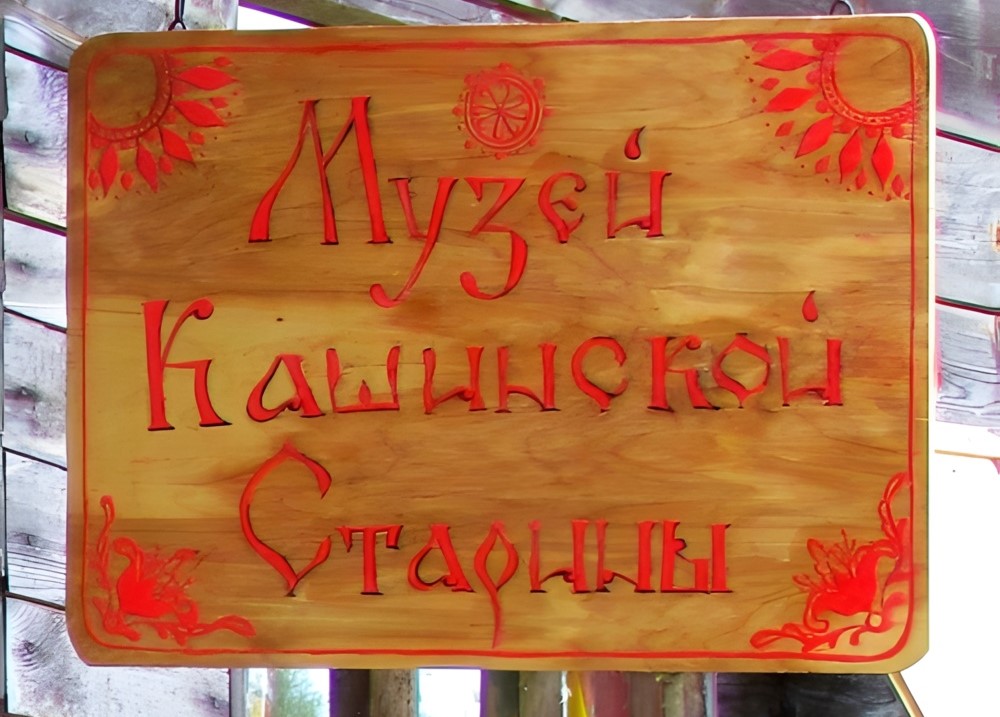 Музей
Кашинской
Старины